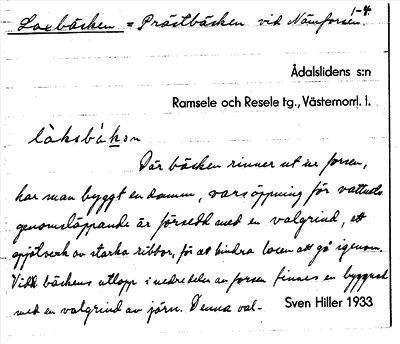 1-4.
Laxbäcken = Prästbäcken vid Nämforsen.
Ådalslidens s:n
Ramsele och Resele tg., Västernorrl. l.
låksbäkɘn
Där bäcken rinner ut ur forsen,
har man byggt en damm, vars öppning för vattnets
genomsläppande är försedd med en valgrind, ett
spjälverk av starka ribbor, för att hindra laxen att gå igenom.
Vid bäckens utlopp i nedre delen av forsen finnes en byggnad
med en valgrind av järn. Denna val-
Sven Hiller 1933